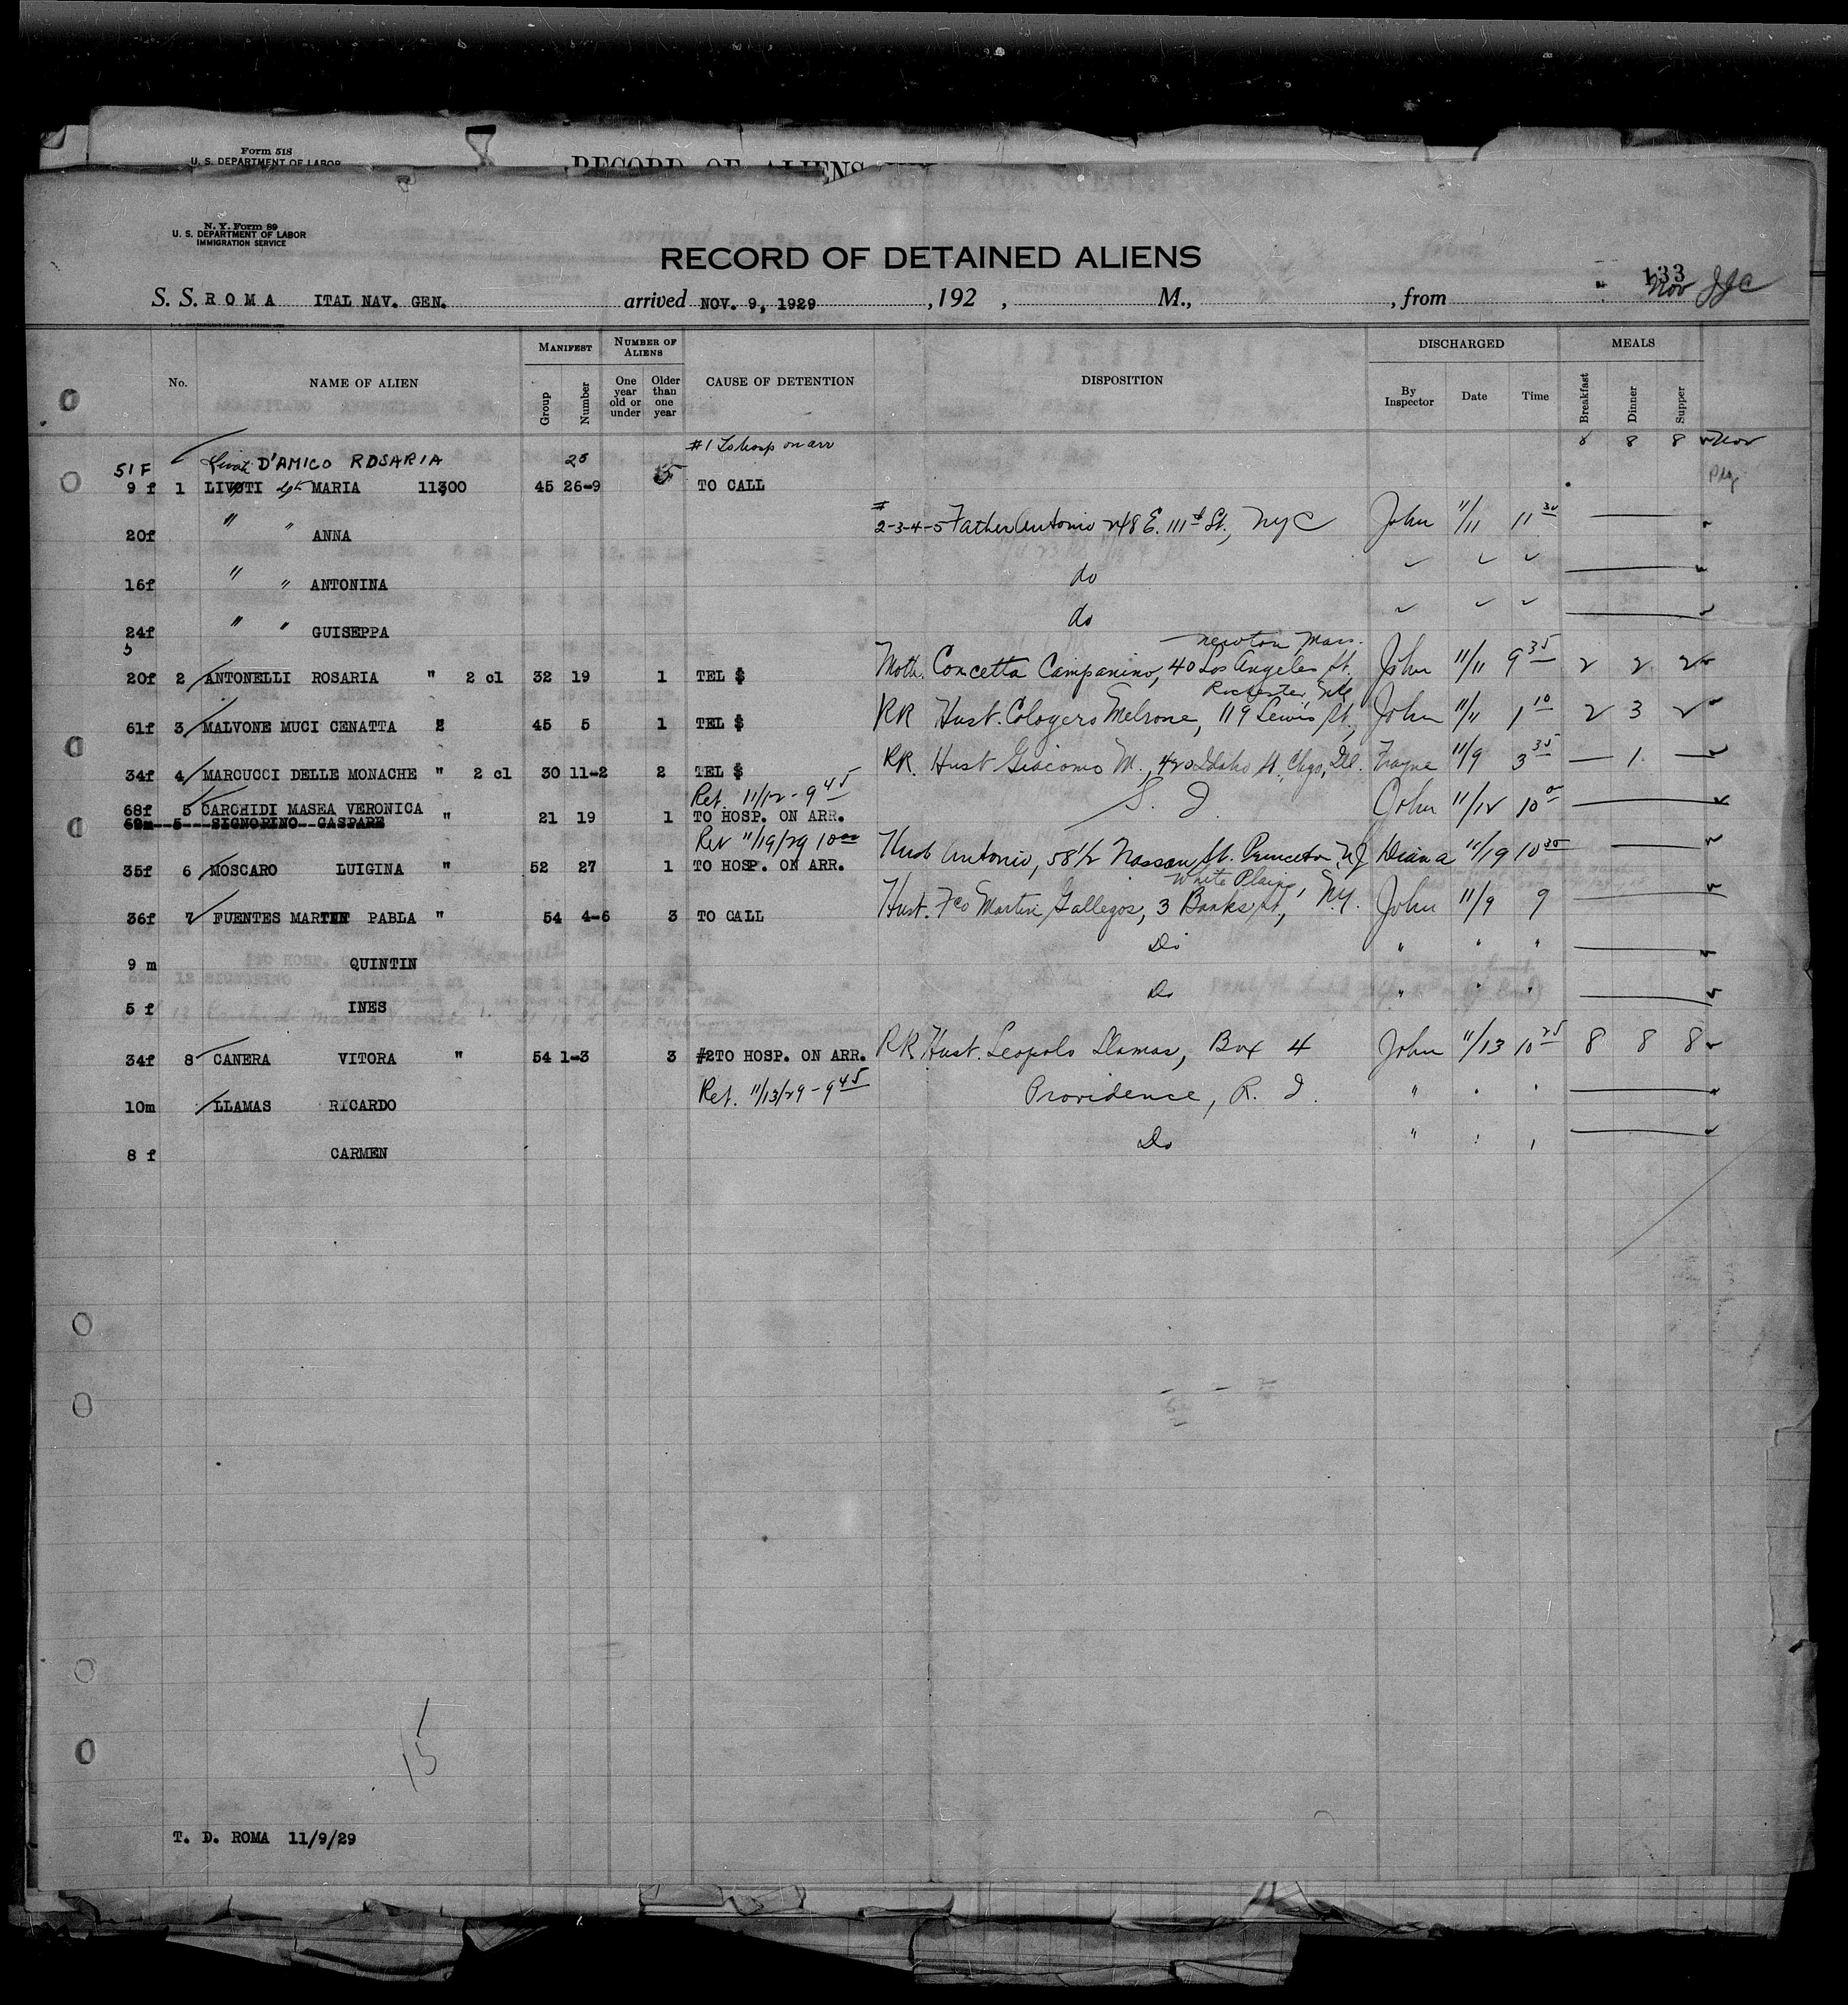 Form 518
U. S. DEPARTMENT OF LABOR
RECORD OF ALIENS
N. Y. Form 89
U. S. DEPARTMENT OF LABOR
IMMIGRATION SERVICE
RECORD OF DETAINED ALIENS
133
Nov
S. S. ROMA ITAL NAV. GEN. arrived NOV. 9, 1929, 192 , M., , from
No. NAME OF ALIEN MANIFEST Group Number NUMBER OF ALIENS One year old or under Older than one year CAUSE OF DETENTION DISPOSITION DISCHARGED By Inspector Date Time MEALS Breakfast Dinner Supper
#1 To hosp on arr 8 8 8 Nov
51 F D'AMICO ROSARIA 25
9 f 1 LIVOTI MARIA 11300 45 26-9 5 TO CALL
20f " " ANNA # 2-3-4-5 Father Antonio 248 E. 111th St., NYC John 11/11 11 30
16f " " ANTONINA do
24f " " GUISEPPA do
Newton Mass.
20f 2 ANTONELLI ROSARIA " 2 cl 32 19 1 TEL $ Moth. Concetta Campanino, 40 Los Angeles St. John 11/11 9 35 2 2 2
Rochester, NY
61f 3 MALVONE MUCI CENATTA 2 45 5 1 TEL $ RR Husb. Cologero Melrone, 119 Lewis St., John 11/11 1 10 2 3 2
34f 4 MARCUCCI DELLE MONACHE " 2 cl 30 11-2 2 TEL $ RR. Husb Giacomo M., 420 Idaho St., Chgo, Ill. Frayne 11/9 3 35 — 1 —
Ret. 11/12 - 9 45
68f 5 CARCHIDI MASEA VERONICA S. I. John 11/12 10 00
69m--5---SIGNORINO--GASPARE " 21 19 1 TO HOSP. ON ARR.
Ret 11/19/29 10 00
35f 6 MOSCARO LUIGINA " 52 27 1 TO HOSP. ON ARR. Husb Antonio, 58 1/2 Nassau St. Princeton NJ Diana 11/19 10 30
White Plains,
36f 7 FUENTES MARTIN PABLA " 54 4-6 3 TO CALL Husb. Fco Martin Gallegos, 3 Banks St, N.Y. John 11/9 9
9 m QUINTIN Do " " "
5 f INES Do " " "
34f 8 CANERA VITORA " 54 1-3 3 #2TO HOSP. ON ARR. RR Husb. Leopolo Llamas, Box 4 John 11/13 10 25 8 8 8
10m LLAMAS RICARDO Ret. 11/13/29 - 9 45 Providence, R. I. "
8 f CARMEN Do "
15
T. D. ROMA 11/9/29